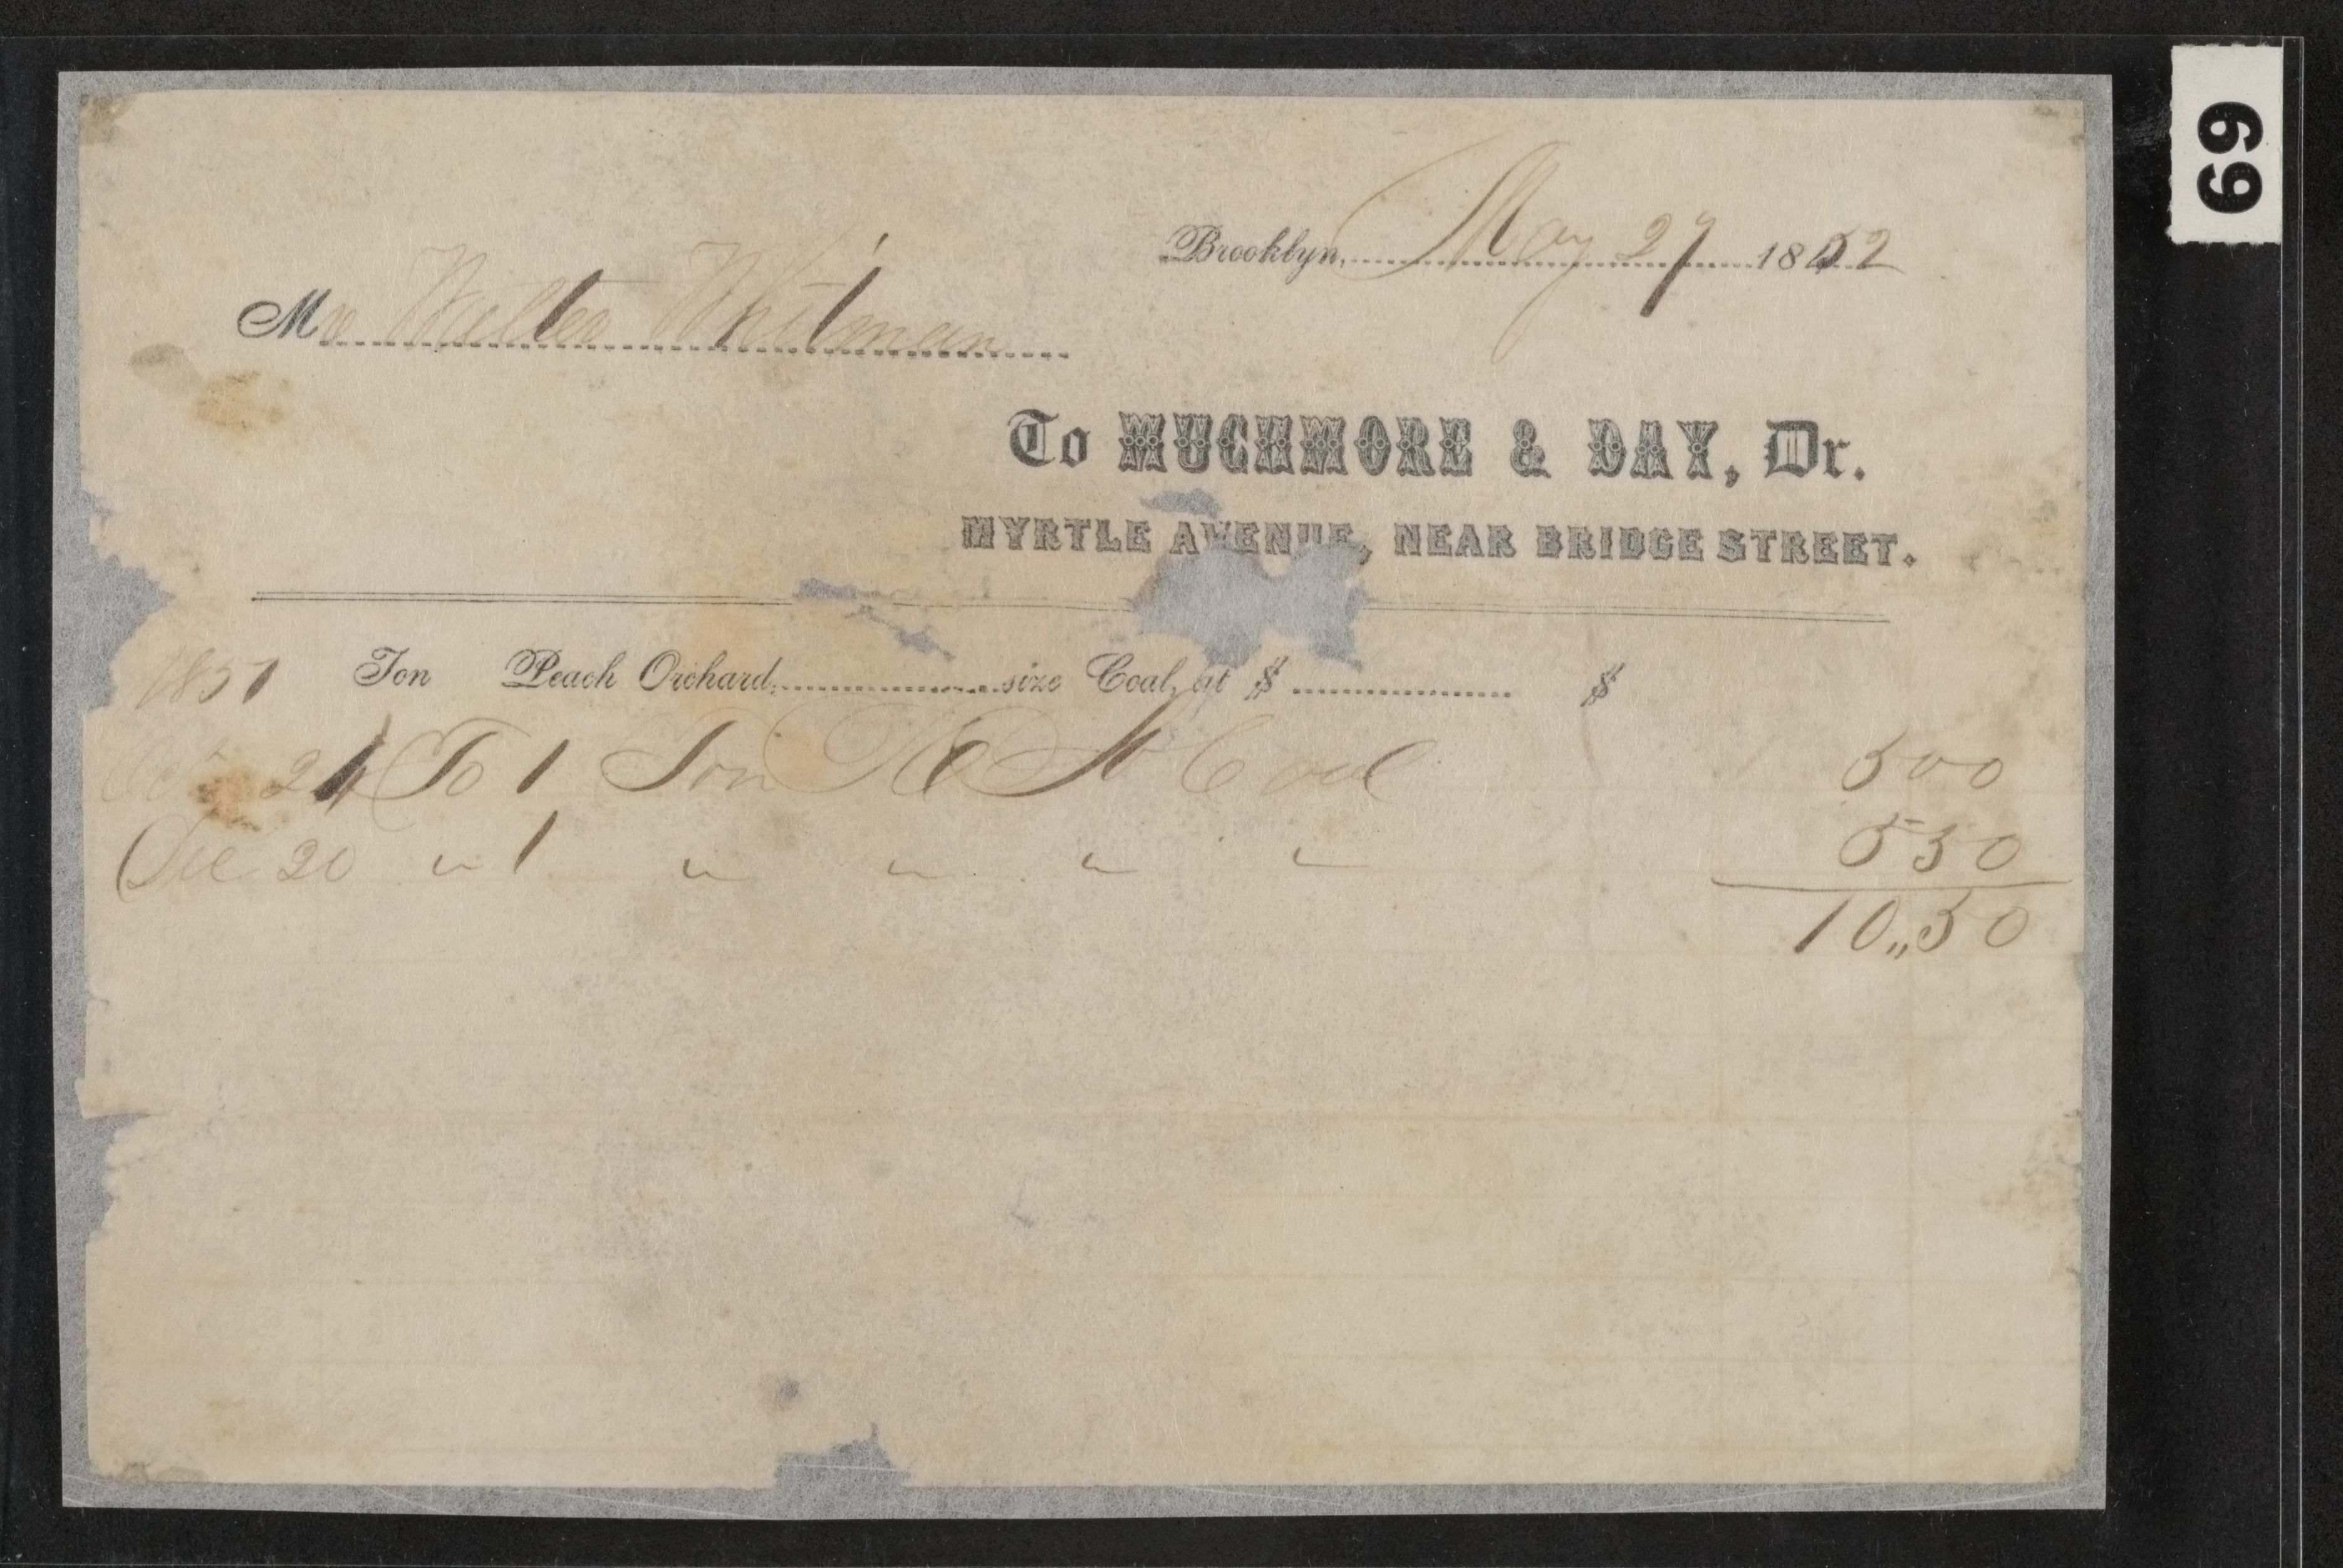 69
Brooklyn, May 27 1852
Mr Walter Whitman
To MUCHMORE & DAY, Dr.
MYRTLE AVENUE, NEAR BRIDGE STREET.
1851 Ton Peach Orchard, size Coal, at $ $
Oct 24 To 1 Ton Coal 500
Dec 20 " 1 " " " " 550
10,,50